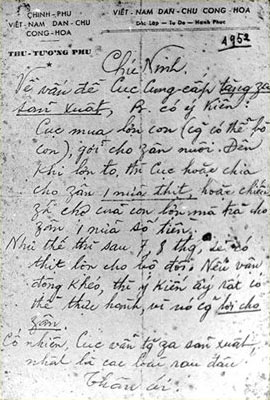 CHÍNH-PHỦ
VIỆT-NAM DÂN-CHỦ
CỘNG-HÒA
THỦ-TƯỚNG PHỦ
VIỆT-NAM DÂN-CHỦ CỘNG-HÒA
Độc Lập — Tự Do — Hạnh Phúc
1952
Chú Ninh.
Về vấn đề Cục Cung cấp tăng za
sản xuất, B. có ý kiến:
Cục mua lợn con (cỡ có thể bộ
con), gởi cho zân nuôi. Đến
khi lớn to, thì Cục hoặc chia
cho zân 1 nửa thịt, hoặc chiếu
zá cả của con lợn mà trả cho
zân 1 nửa số tiền.
Như thế thì sau 7, 8 thg, sẽ có
thịt lợn cho bộ đội. Nếu vận
động khéo, thì ý kiến ấy rất có
thể thực hành, vì nó cỡ lợi cho
zân.
Cố nhiên, Cục vẫn tự za sản xuất,
nhất là các loại rau đậu.
Thân ái.